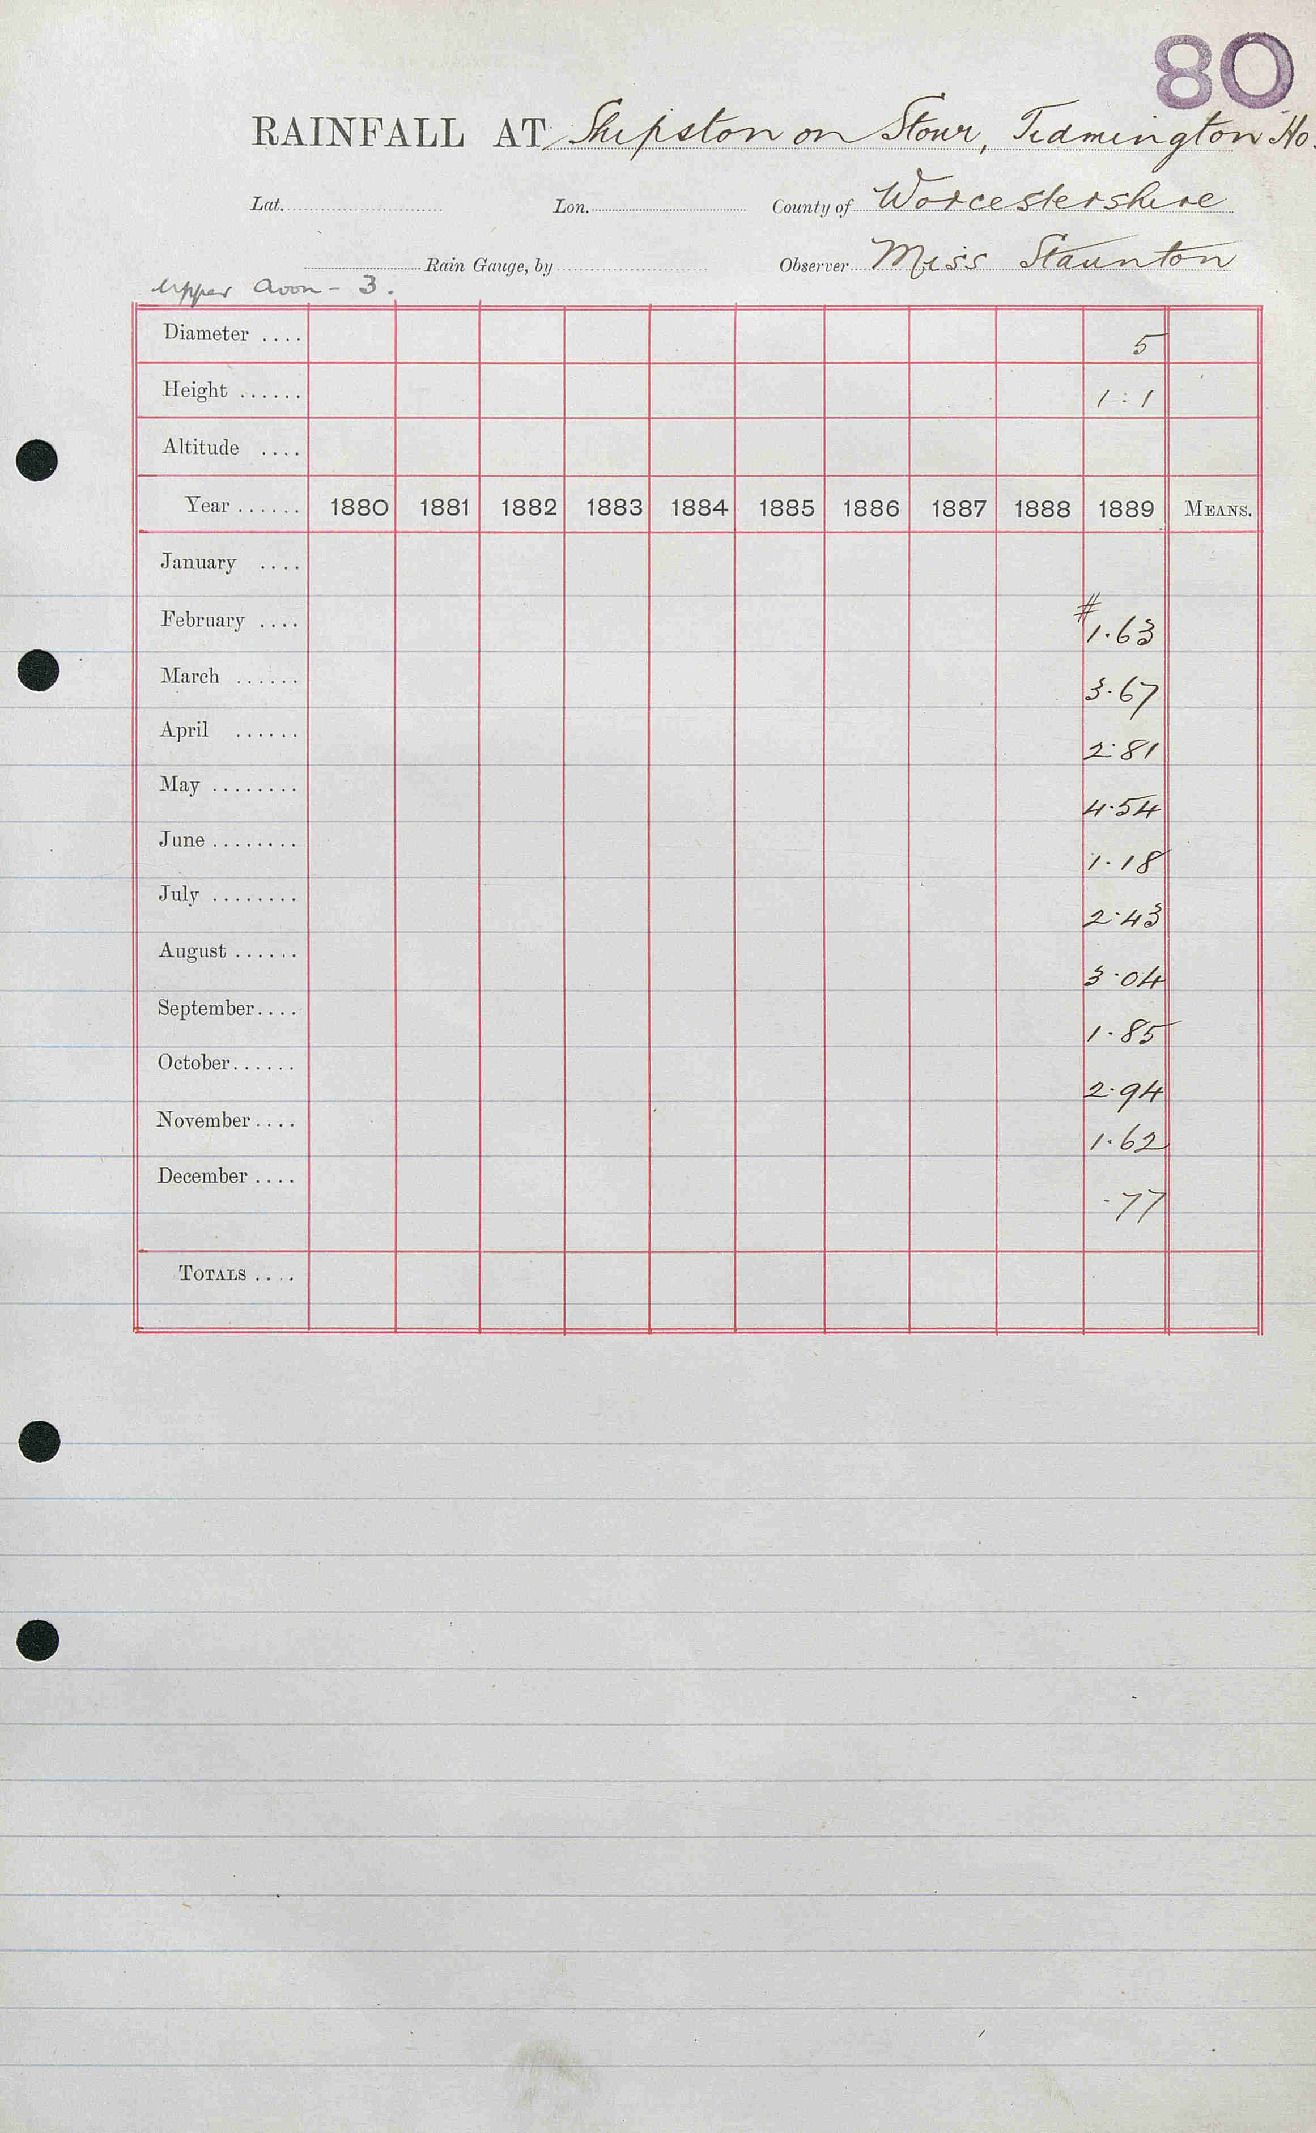 80
RAINFALL AT Shipston on Stour, Tidmington Ho.
Lat. Lon. County of Worcestershire
Rain Gauge, by Observer Miss Staunton
Upper Avon - 3.
Diameter .... 5
Height ...... 1 : 1
Altitude ....
Year ...... 1880 1881 1882 1883 1884 1885 1886 1887 1888 1889 MEANS.
January ....
February .... # 1.63
March ...... 3.67
April ...... 2.81
May ........ 4.54
June ........ 1.18
July ........ 2.43
August ...... 3.04
September.... 1.85
October...... 2.94
November .... 1.62
December .... .77
TOTALS ....